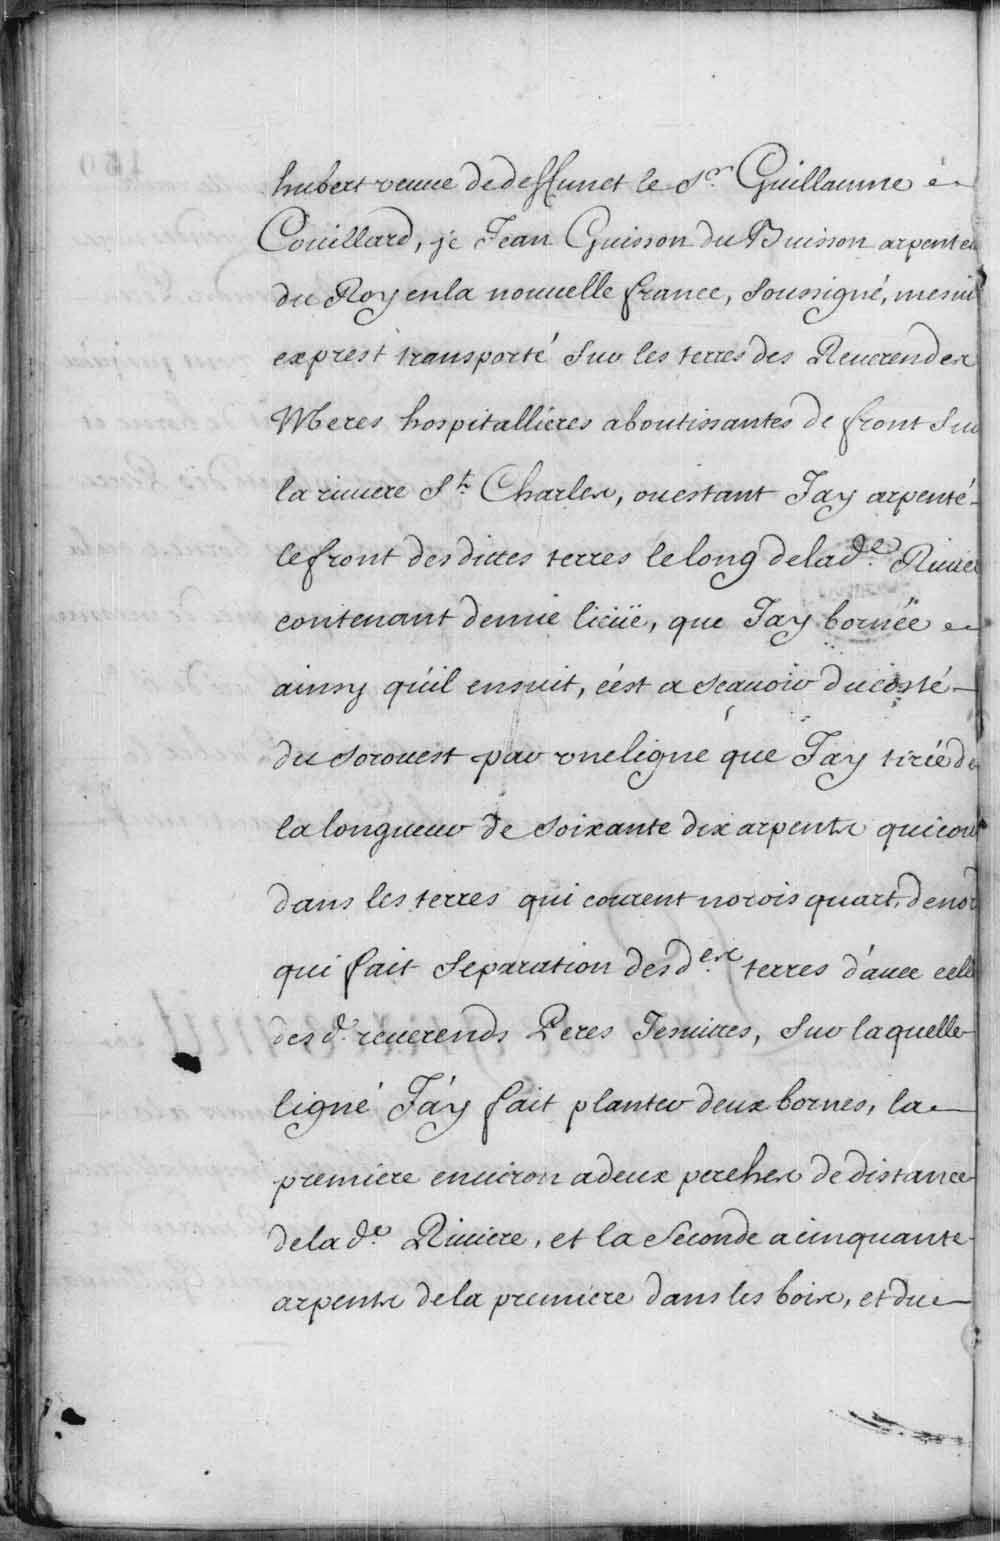 hubert veuue de deffunct le Sr. Guillaume
Coüillard, je Jean Guisson du Buisson arpenteu
du Roy en la nouuelle france, Soussigné, me sui
exprest transporté Sur les terres des Reuerendes
Meres hospitallieres aboutissantes de front Sur
la riuiere St. Charles, ou estant Jay arpenté
le front des dittes terres le long de lad.e Riuier
contenant demie lieüe, que Jay bornée
ainsy qu'il ensuit, c'est a Scauoir du costé
du Sorouest par vne ligne que Jay tirée de
la longueur de Soixante dix arpents qui cour
dans les terres qui courent norois quart de nor
qui fait Separation des d.es terres d'auec cell
des d. reuerends Peres Jesuittes, Sur laquelle
ligne J'ay fait planter deux bornes, la
premiere enuiron a deux perches de distance
de la d.e Riuiere, et la Seconde a cinquante
arpents de la premiere dans les bois, et du